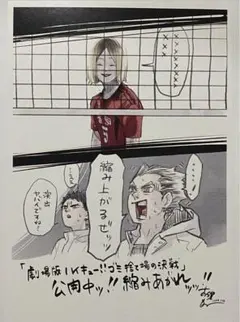 ×××
××××××××
×××
縮み上がるぜッッ
演出
ヤバイんですね!
「劇場版ハイキュー!!ゴミ捨て場の決戦」
公開中ッ!!縮みあがれッッ!!